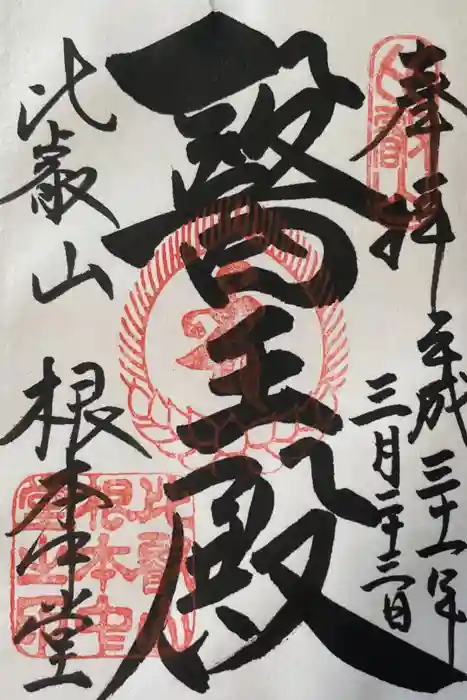 奉拝
平成三十一年
三月二十三日
醫王殿
比叡山
根本中堂